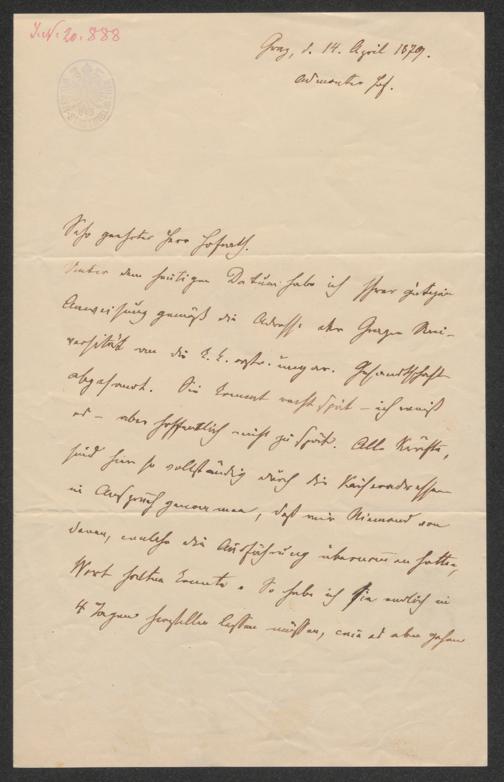 I.N. 20.888
Graz, d. 14. April 1879.
Admonter Hof.
Sehr geehrter Herr Hofrath.
Unter dem heutigen Datum habe ich Ihrer gütigen
Anweisung gemäß die Adresse der Grazer Uni-
versität an die k. k. östr. ungar. Gesandtschaft
abgesandt. Sie kommt recht spät – ich weiß
es – aber hoffentlich nicht zu spät. Alle Kräfte,
sind hier so vollständig durch die Kaiseradressen
in Anspruch genommen, daß mir Niemand von
denen, welche die Ausführung übernommen hatten,
Wort halten konnte. So habe ich sie endlich in
4 Tagen herstellen lassen müssen, wie es eben gehen